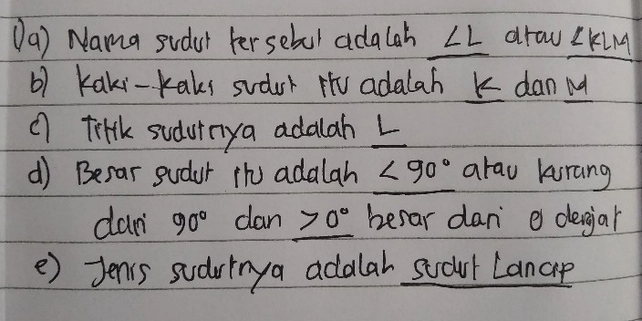 1)a) Nama sudut tersebut adalah ∠L atau ∠KLM
b) kaki-kaki sudut itu adalah K dan M
c) Titik sudutnya adalah L
d) Besar sudut itu adalah <90° atau kurang
dari 90° dan >0° besar dari 0 derajat
e) Jenis sudutnya adalah sudut Lancip